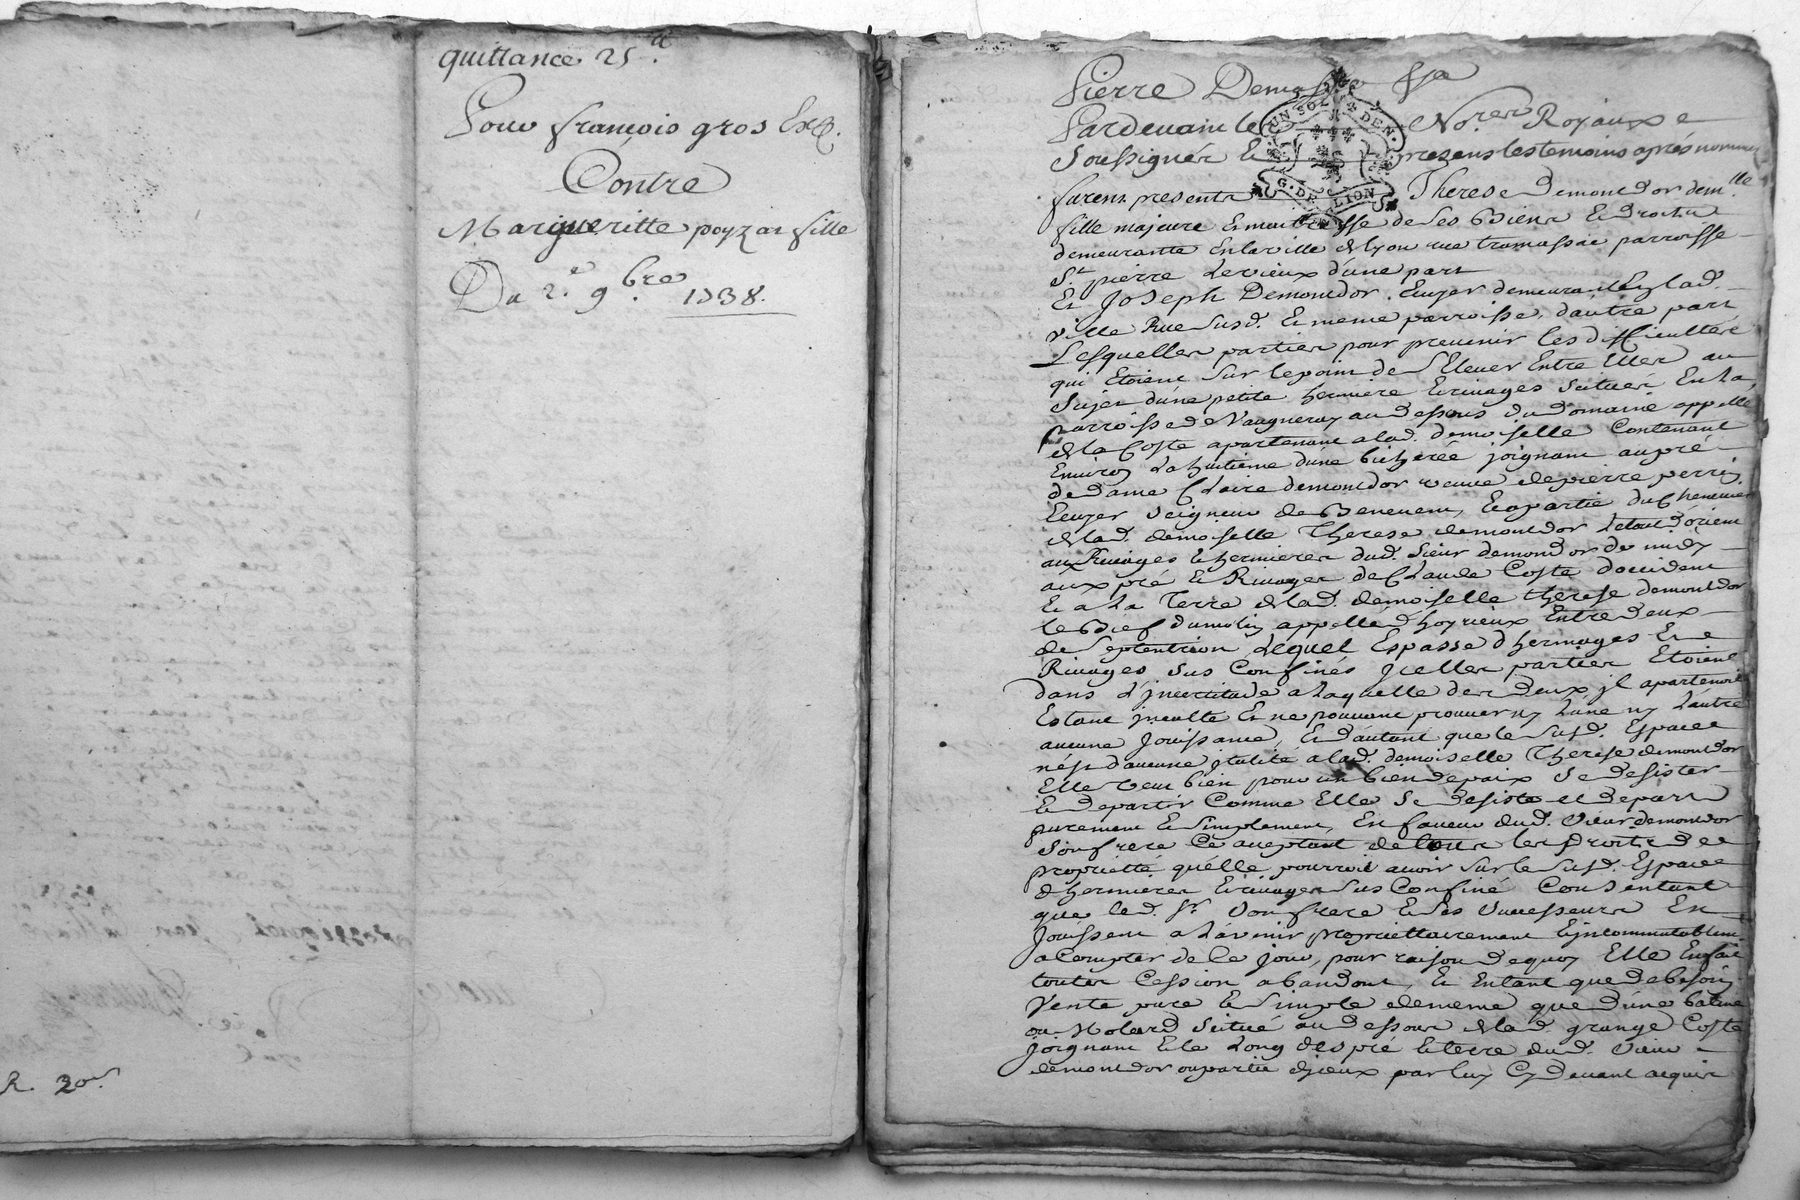 quittance 25ᵗᵗ.
Pour françois gros Exp.
Contre
Margueritte poyzat fille
Du 2.ᵉ 9ᵇʳᵉ 1738.
R. 20ˢ
Pierre Demas
UN SOL DEN.
G. DE LION
Pardevant les No.ʳᵉˢ Royaux
Soussignés Et presens les temoins aprés nommes
furent presents Therese demontdor demˡˡᵉ
fille majeure Et maitresse de ses Biens Et droits
demeurante En la ville de lyon rue tramassac parroisse
Sᵗ. pierre Le vieux d'une part
Et Joseph Demontdor. Ecuyer demeurant En lad.
ville Rue susd. Et meme parroisse, d'autre part
Lesquelles parties pour prevenir les difficultés
qui Etoient sur le point de s'Elever Entre Elles au
Sujet d'une petite hermiere Et rivages scitués En la
parroisse de Vaugneray au dessous du domaine appellé
de la Coste apartenant a lad. demoiselle Contenant
Environ La huitieme d'une bicherée joignant au pré
de dame Claire demontdor veuve de pierre perrin
Ecuyer Seigneur de Benevent, Et partie du
de lad. demoiselle Therese demontdor Le tout d'orient
aux Rivages Et hermieres dud. sieur demontdor de midy
aux pré Et Rivages de Claude Coste d'occident
Et a La Terre de lad. demoiselle therese demontdor
le Bief du molin appellé d'hoyrieux Entre deux
de Septentrion Lequel Espasse d'hermages Et
Rivages sus Confinés Jcelles parties Etoient
dans L'jncertitude a Laquelle des deux jl apartenoit
Estant jnculte Et ne pouvant prouver ny L'une ny L'autre
aucune Jouissance, Et d'autant que le susd. Espace
n'est d'aucune jtulité a lad. demoiselle Therese demontdor
Elle veut bien pour un bien de paix se desister
Et departir Comme Elle se desiste et depart
purement Et simplement, En faveur dud. sieur demontdor
son frere Ce aceptant de tous les droits de
proprietté qu'elle pourroit avoir sur le susd. Espace
d'hermieres Et rivages sus Confiné Consentant
que led. sʳ. son frere Et ses successeurs En
Jouissent a L'avenir proprietairement Et jncommutablem.
a Compter de Ce jour, pour raison de quoy Elle En fait
toutes Cession abandont, Et En tant que de besoin
Vente pure Et simple de meme que d'une
ou Molard scitué au dessous de lad. grange Coste
joignant Et le Long des pré Et terre dud. sieur
demontdor ou partie d'jceux par luy Cy devant acquis